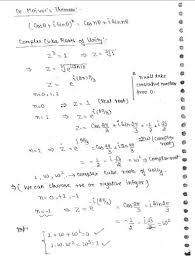 De Moivre's Theorem:-
(cosθ + i sinθ)ⁿ = cos nθ + i sin nθ
Complex Cube Roots of Unity:-
z³ = 1 ⇒ z = ∛1
⇒ z =
⇒ z = e^(i2nπ/3)
n will take
consecutive numbers
from 0.
n=0 ⇒ z = 1 (Real root)
n=1 ⇒ z = e^(i2π/3)
z = cos 2π/3 + i sin 2π/3
= -1/2 + i√3/2 = w (complex root)
n=2 ⇒ z = e^(i4π/3)
z = cos 4π/3 + i sin 4π/3
= -1/2 - i√3/2 = w² (complex root)
1, w, w² → complex cube roots of unity.
(We can choose +ve or negative integer)
n = 0, +1, -1
n=-1 ⇒ z = e^(-i2π/3)
= cos 2π/3 - i sin 2π/3
= -1/2 - i√3/2 = w²
1 + w + w² = 0
1·w·w² = 1